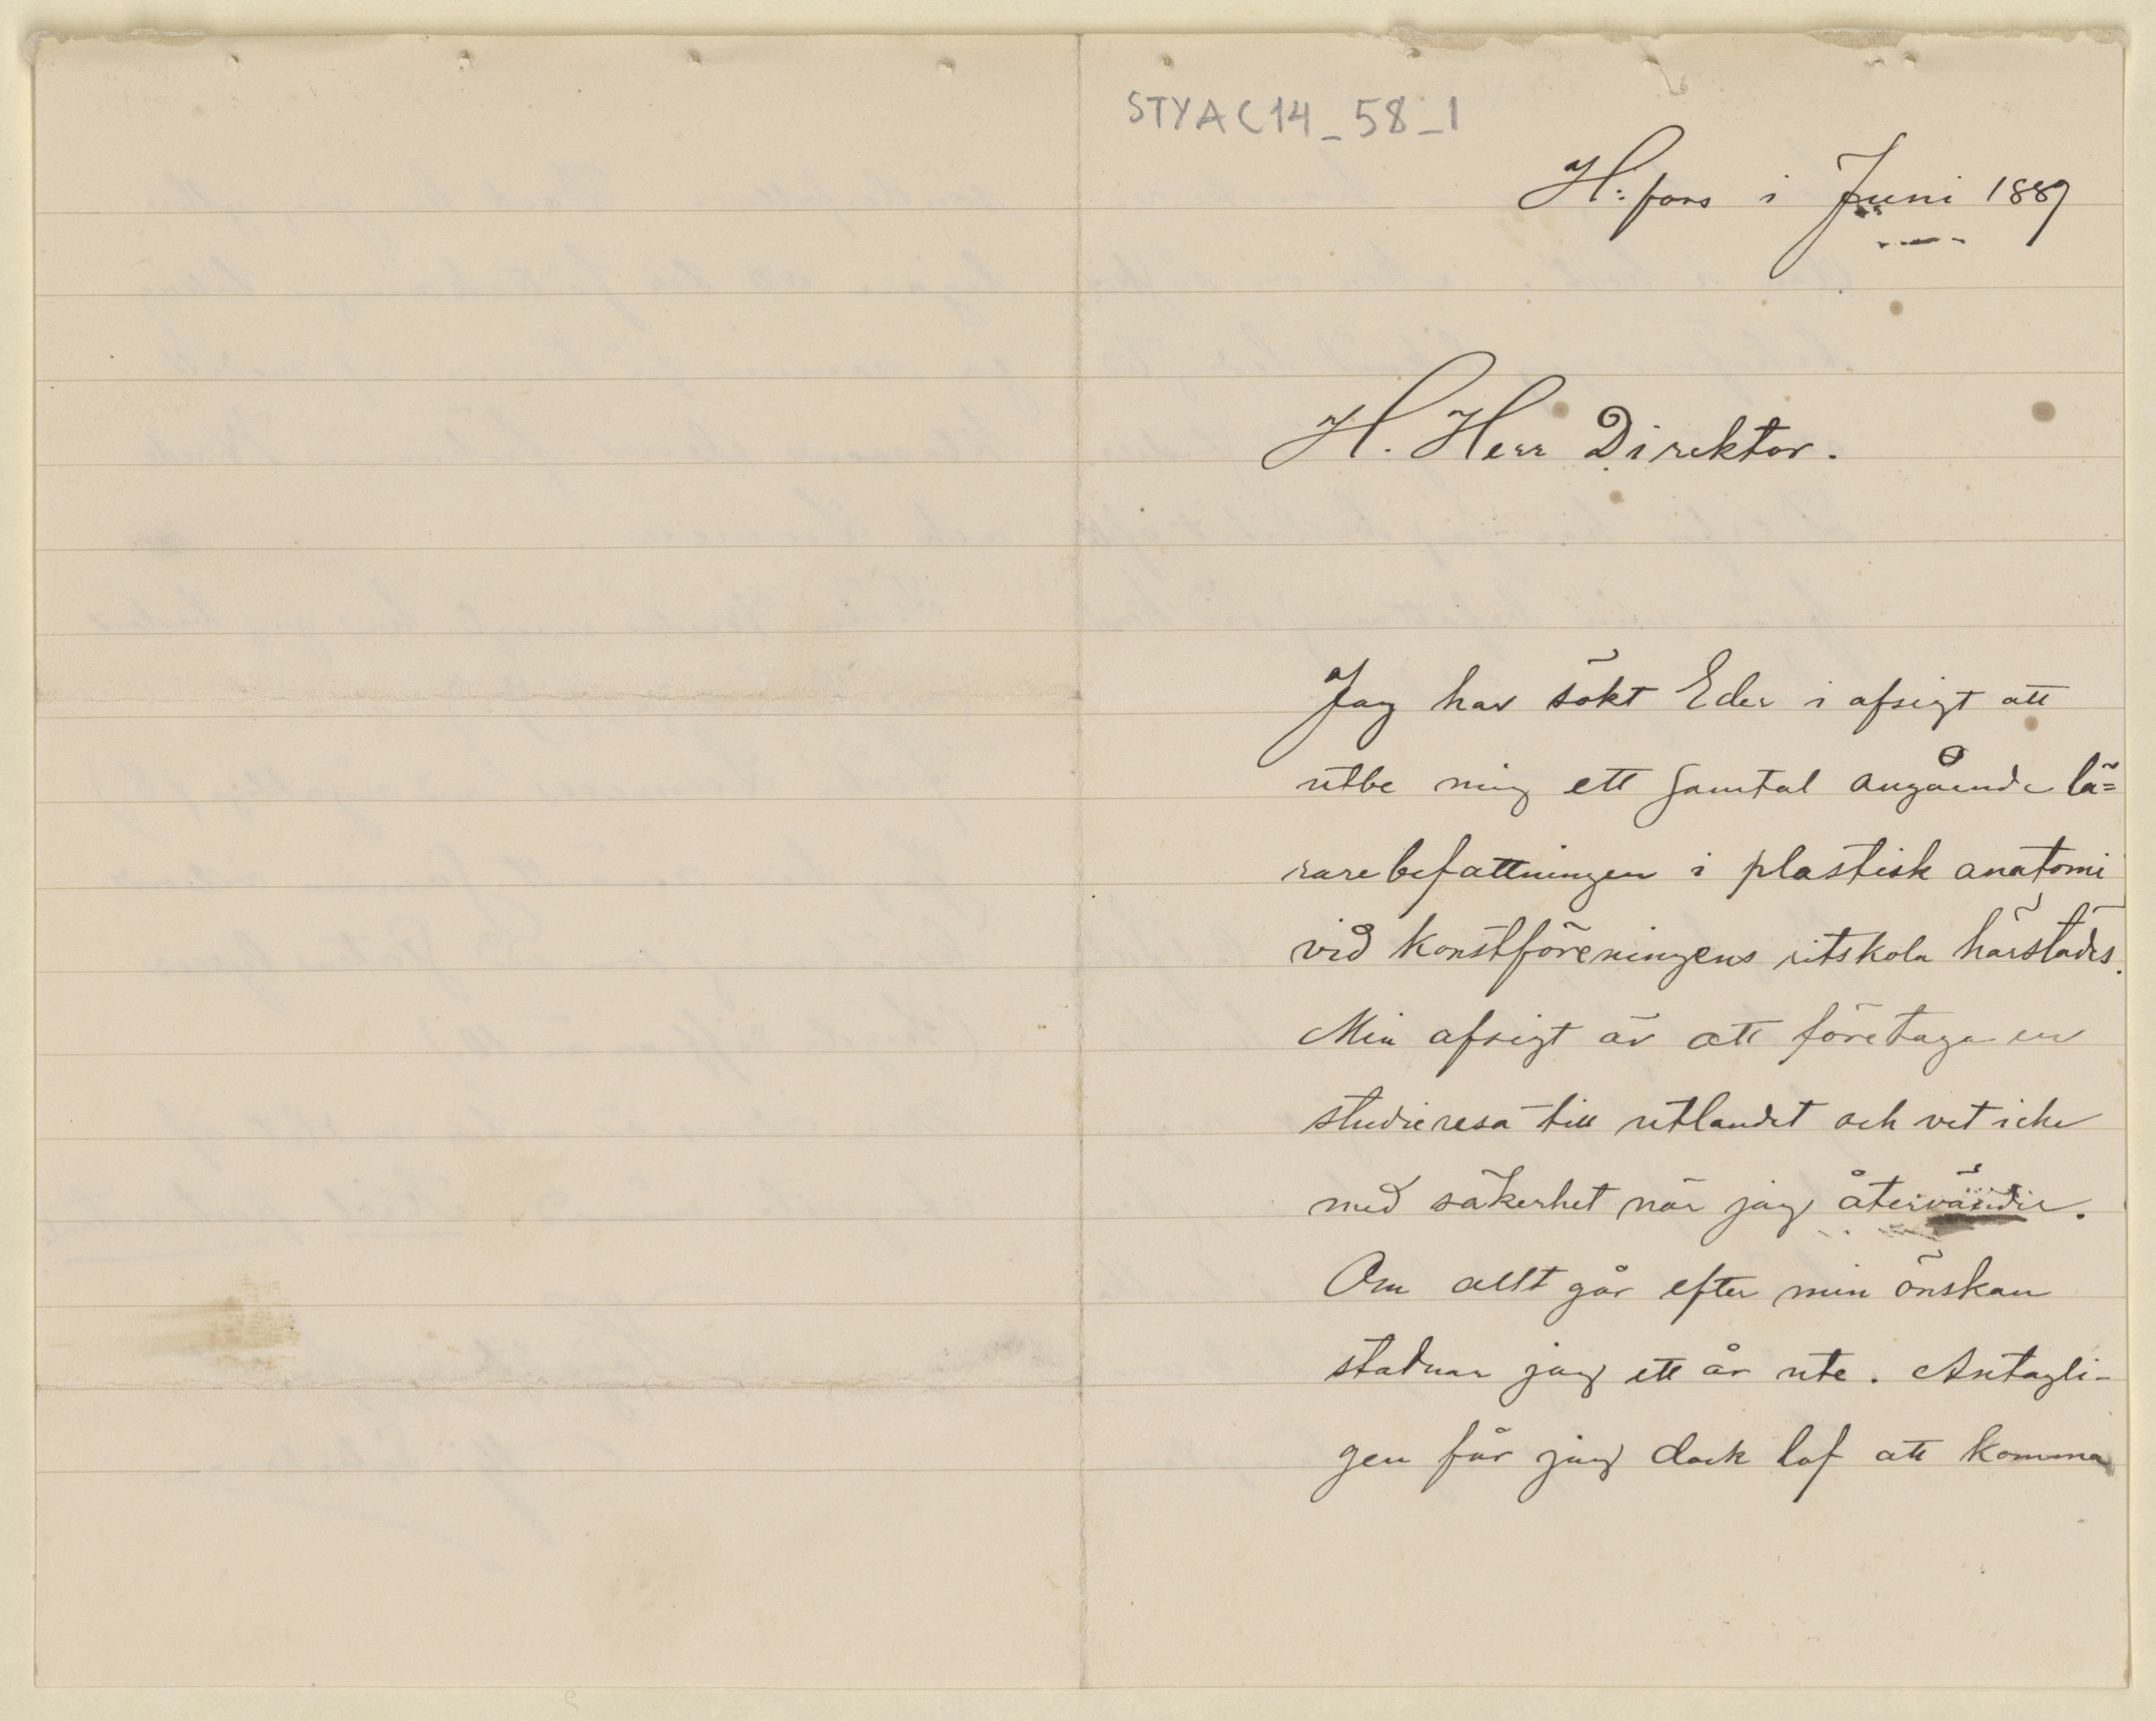 STYA C14_58_1
H:fors i Juni 1889
H. Herr Direktor.
Jag har sökt Eder i afsigt att
utbe mig ett samtal angående lä=
rarebefattningen i plastisk anatomi
vid konstföreningens ritskola härstädes.
Min afsigt är att företaga en
studieresa till utlandet och vet icke
med säkerhet när jag återvänder.
Om allt går efter min önskan
stadnar jag ett år ute. Antagli-
gen får jag dock lof att komma